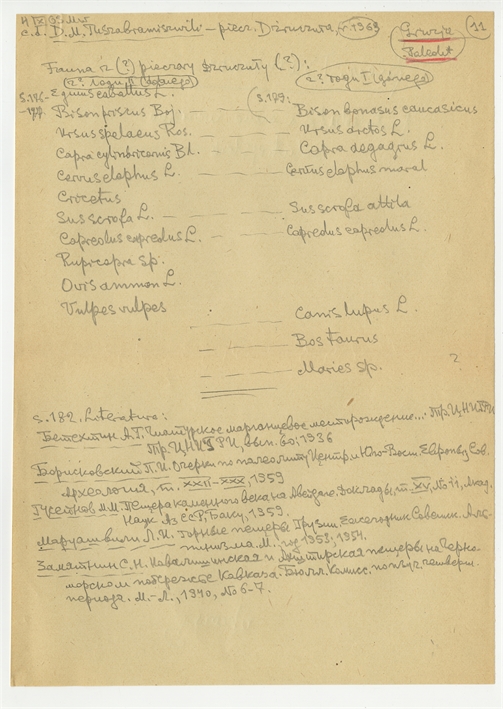 c.d. D. M. Tuszabramiszwili – piecz. Dżruczuła, r. 1963
Gruzja
Paleolit
11
Fauna z (?) pieczary Dżruczuły (?):
S. 176-
-177.
Equus caballus L.
S. 179:
Bison priscus Boj. — Bison bonasus caucasicus
Ursus spelaeus Ros. — Ursus arctos L.
Capra cylindricornis Bl. — Capra aegagrus L.
Cervus elaphus L. — Cervus elaphus maral
Cricetus
Sus scrofa L. — Sus scrofa attila
Capreolus capreolus L. — Capreolus capreolus L.
Rupicapra sp.
Ovis ammon L.
Vulpes vulpes — Canis lupus L.
Bos taurus
Martes sp. ?
S. 182. Literatura:
Бетехтин А.Г. Чиатурское марганцевое месторождение... Тр. ЦНИГРИ
Тр. ЦНИГРИ, вып. 60; 1936
Борисковский П.И. Очерки по палеолиту Центр. и Юго-Вост. Европы, Сов.
Археология, т. XXII–XXX, 1959
Гусейнов М.М. Пещера каменного века на Авейдаге. Доклады, т. XV, № 11, Акад.
Наук Аз ССР, Баку, 1959.
Маруашвили Л.И. Горные пещеры Грузии. Ежегодник Советск. Аль-
пинизма. М. год 1953, 1954.
Замятнин С.Н. Навалишинская и Ахштырская пещеры на Черно-
морском побережье Кавказа. Бюлл. Комисс. по изуч. четверт.
периода. М.-Л., 1940, № 6-7.